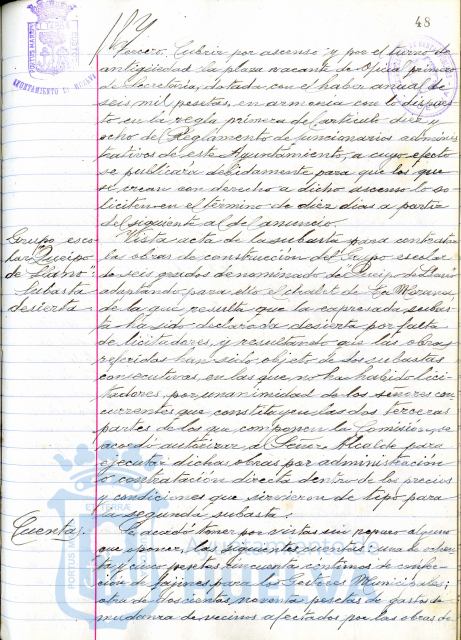 48
Tercero. Cubrir por ascenso y por el turno de
antigüedad la plaza vacante de Oficial primero
de Secretaría, dotada con el haber anual de
seis mil pesetas, en armonía con lo dispues-
to en la regla primera del artículo diez y
ocho del Reglamento de funcionarios adminis-
trativos de este Ayuntamiento, a cuyo efecto
se publicará debidamente para que los que
se crean con derecho a dicho ascenso lo so-
liciten en el término de diez días a partir
del siguiente al del anuncio.
Grupo esco-
lar "Queipo
de Llano".
Subasta
desierta
Vista acta de la subasta para contratar
las obras de construcción del Grupo escolar
de seis grados denominado de Queipo de Llano
adaptando para ello el chalet de La Morana,
de la que resulta que la expresada subas-
ta ha sido declarada desierta por falta
de licitadores, y resultando que las obras
referidas han sido objeto de dos subastas
consecutivas, en las que no ha habido lici-
tadores, por unanimidad de los señores con-
currentes que constituyen las dos terceras
partes de los que componen la Comisión, se
acordó autorizar al Señor Alcalde para
ejecutar dichas obras por administración
o contratación directa dentro de los precios
y condiciones que sirvieron de tipo para
la segunda subasta.
Cuentas.
Se acordó tener por vistas sin reparo alguno
que oponer, las siguientes cuentas: una de ochen-
ta y cinco pesetas cincuenta céntimos de confec-
ción de fajines para los Gestores Municipales;
otra de doscientas noventa pesetas de gastos de
mudanza de vecinos afectados por las obras de